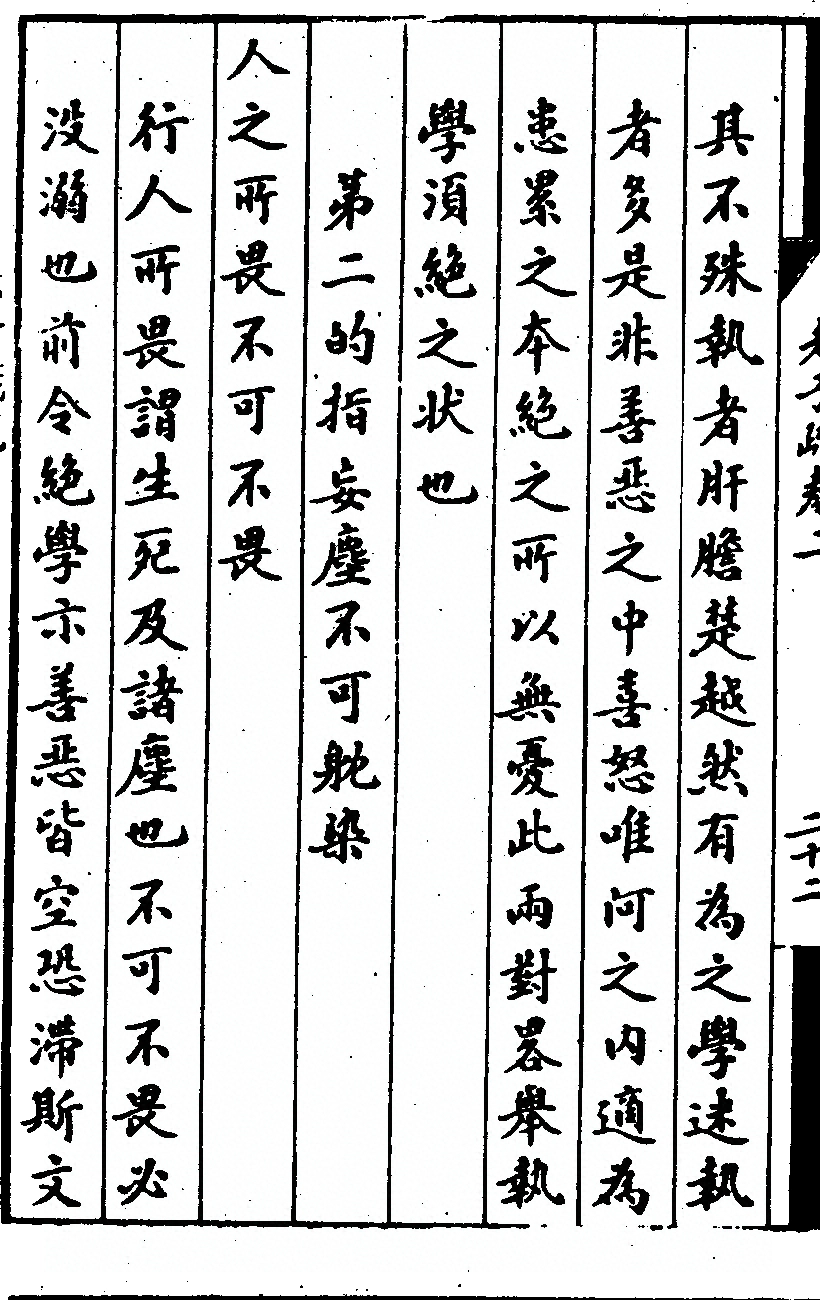 其不殊執者肝膽楚越然有為之學迷執
者多是非善惡之中喜怒唯阿之內適為
患累之本絕之所以無憂此兩對畧舉執
學須絕之状也
第二的指妄塵不可躭染
人之所畏不可不畏
行人所畏謂生死及諸塵也不可不畏必
没溺也前令絕學示善惡皆空恐滯斯文
二十二